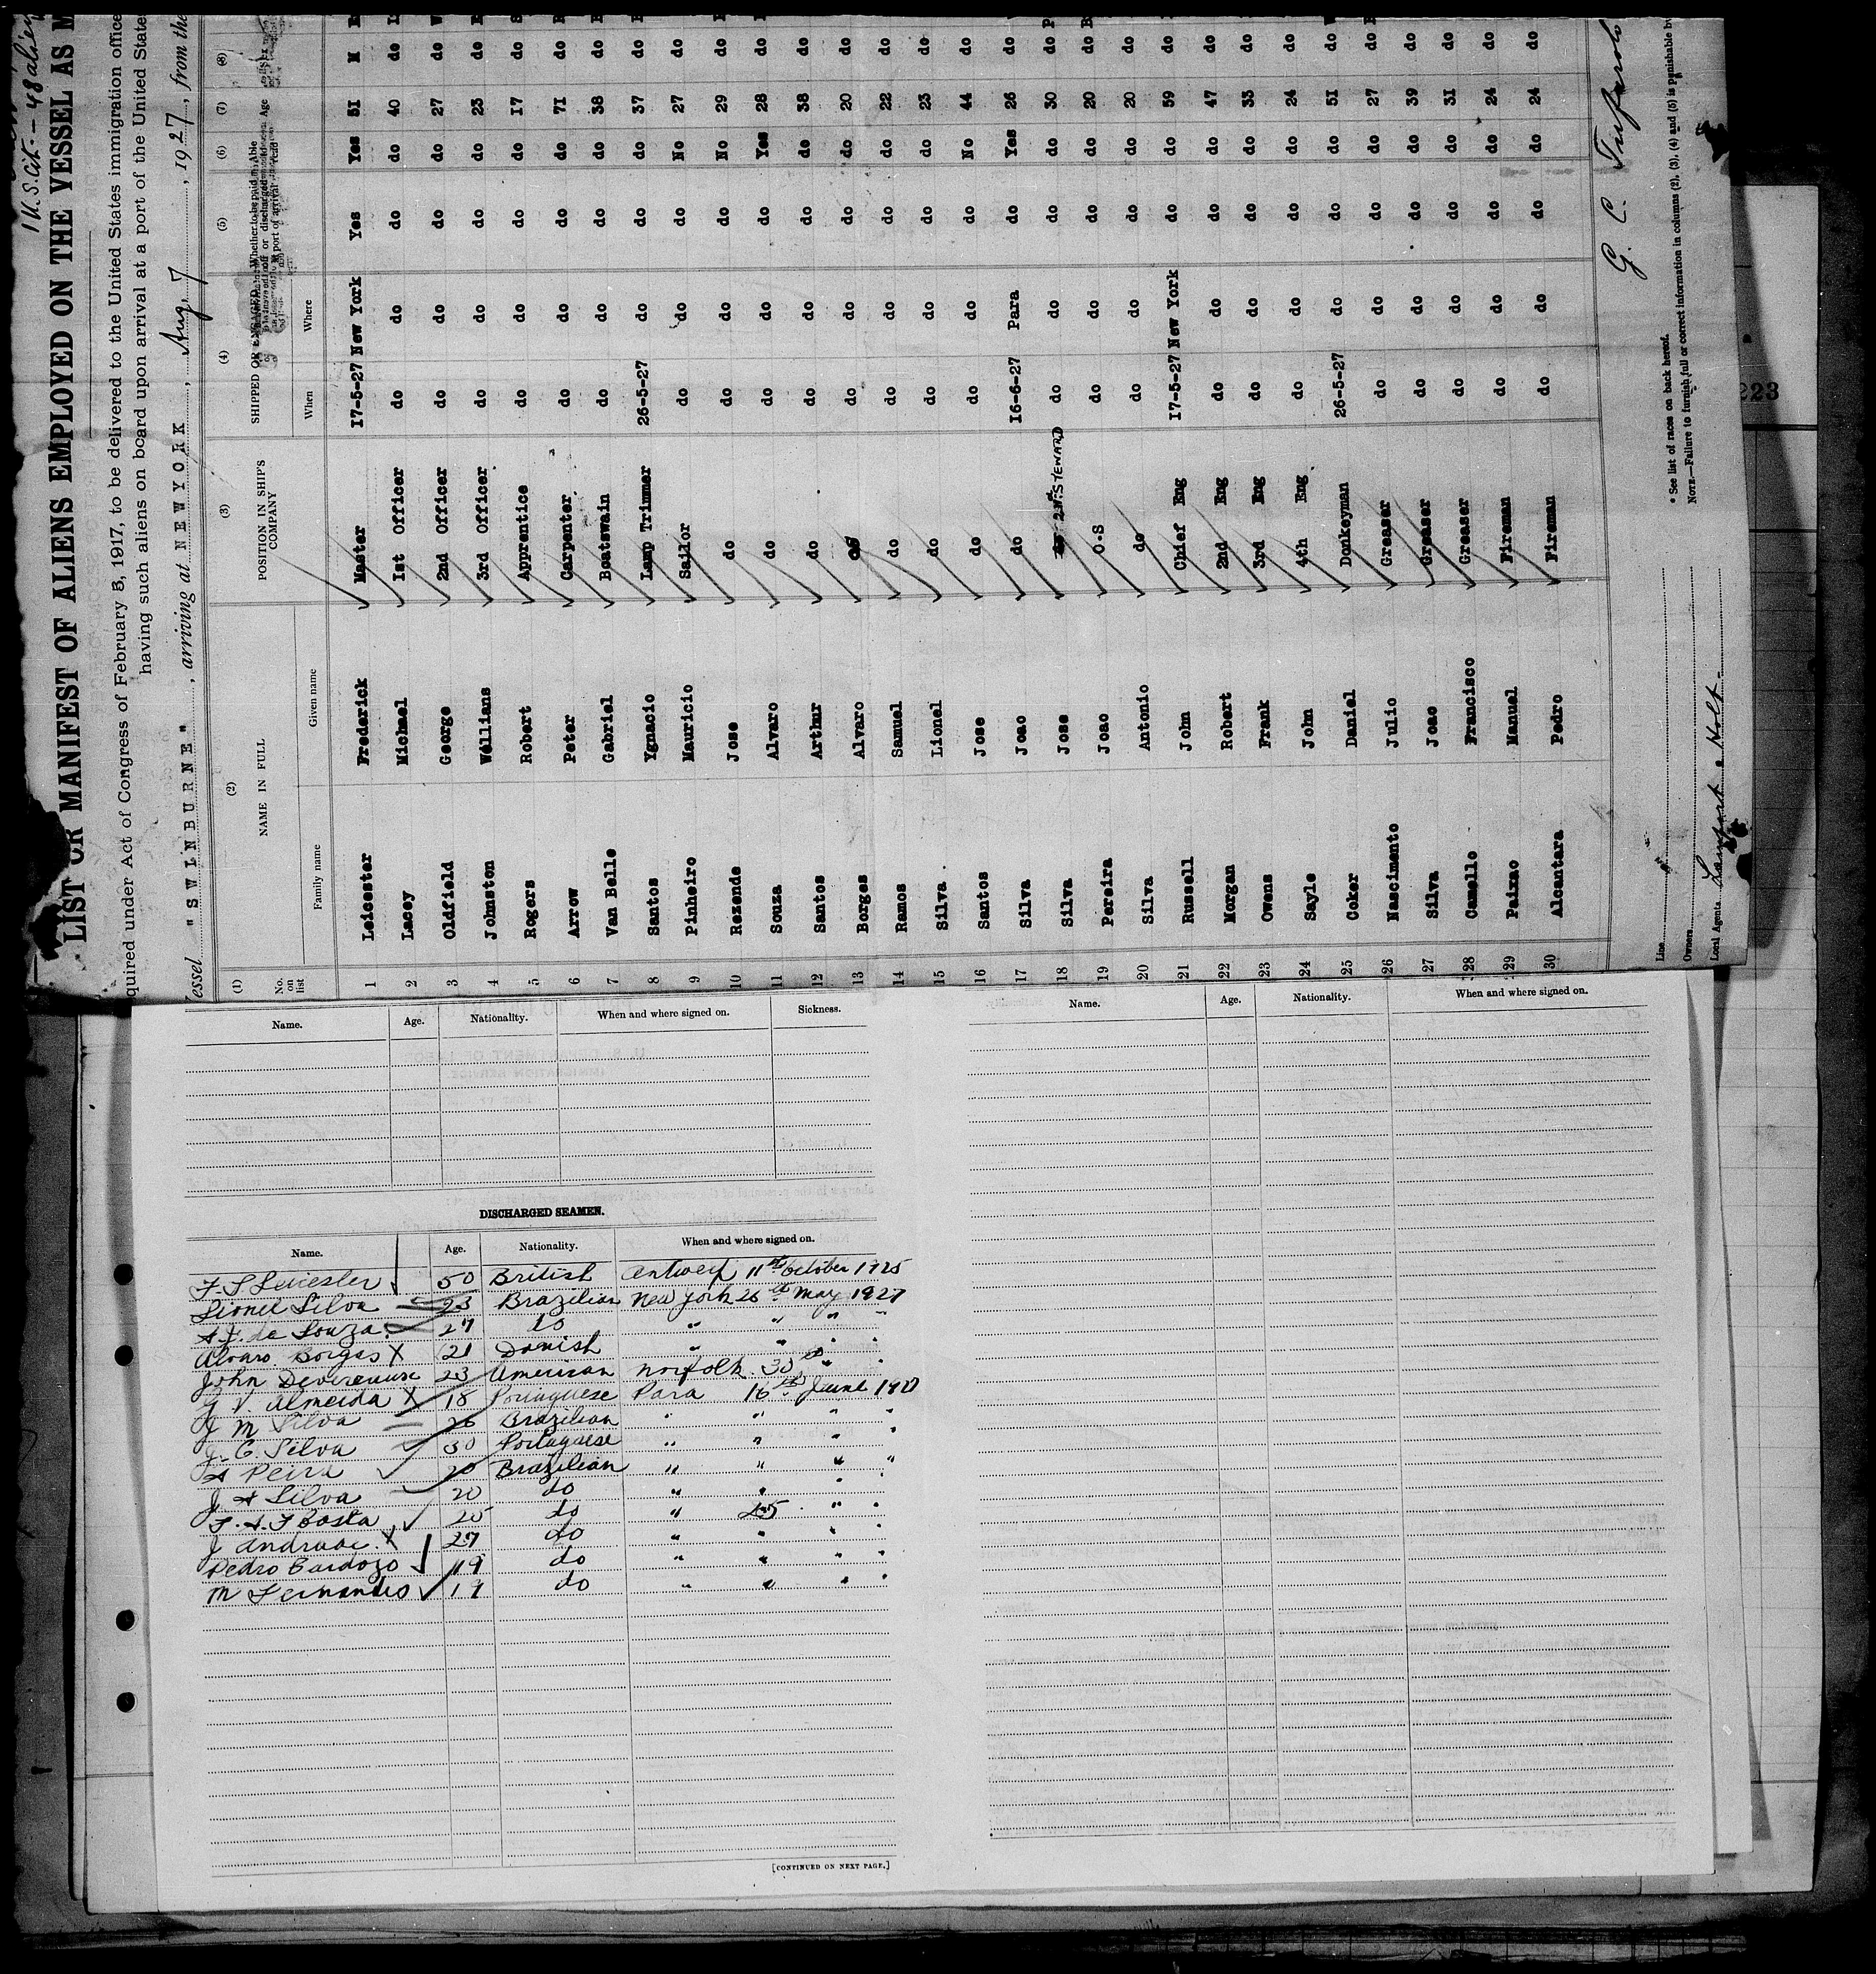 1 U.S. Cit. - 48 alien
LIST OR MANIFEST OF ALIENS EMPLOYED ON THE VESSEL AS M
quired under Act of Congress of February 5, 1917, to be delivered to the United States immigration office
having such aliens on board upon arrival at a port of the United State
essel "SWINBURNE", arriving at NEW YORK, Aug. 7, 1927, from the
(1) (2) (3) (4) (5) (6) (7) (8)
No. on list NAME IN FULL POSITION IN SHIP'S COMPANY SHIPPED OR ENGAGED Whether to be paid off or discharged at port of arrival Able to read Age Sex
Family name Given name When Where
1 Leicester Frederick Master 17-5-27 New York Yes Yes 51 M
2 Lacey Michael 1st Officer do do do do 40 do
3 Oldfield George 2nd Officer do do do do 27 do
4 Johnston Wéllians 3rd Officer do do do do 23 do
5 Rogers Robert Apprentice do do do do 17 do
6 Arrow Peter Carpenter do do do do 71 do
7 Van Belle Gabriel Boatswain do do do do 38 do
8 Santos Ygnacio Lamp Trimmer 26-5-27 do do do 37 do
9 Pinheiro Mauricio Sailor do do do No 27 do
10 Rezende Jose do do do do No 29 do
11 Souza Alvaro do do do do Yes 28 do
12 Santos Arthur do do do do do 38 do
13 Borges Alvaro do do do do 20 do
14 Ramos Samuel do do do do do 22 do
15 Silva Lionel do do do do do 23 do
16 Santos Jose do do do do No 44 do
17 Silva Joao do 16-6-27 Para do Yes 26 do
18 Silva Jose 2nd STEWARD do do do do 30 do
19 Pereira Joao O-S do do do do 20 do
20 Silva Antonio do do do do do 20 do
21 Russell John Chief Eng 17-5-27 New York do do 59 do
22 Morgan Robert 2nd Eng do do do do 47 do
23 Owens Frank 3rd Eng do do do do 33 do
24 Sayle John 4th Eng do do do do 24 do
25 Coker Daniel Donkeyman 26-5-27 do do do 51 do
26 Nascimento Julio Greaser do do do do 27 do
27 Silva Joao Greaser do do do do 39 do
28 Camello Francisco Greaser do do do do 31 do
29 Paixao Manuel Fireman do do do do 24 do
30 Alcantara Pedro Fireman do do do do 24 do
G. C.
Line
Owners
Local Agents Lamport & Holt
* See list of races on back hereof.
NOTE.—Failure to furnish full or correct information in columns (2), (3), (4) and (5) is punishable b
223
Name. Age. Nationality. When and where signed on. Sickness.
DISCHARGED SEAMEN.
Name. Age. Nationality. When and where signed on.
F. S Leicester 50 British Antwerp 11th October 1925
Lionel Silva 23 Brazilian New York 26th May 1927
A J. de Souza 27 do " " " "
Alvaro Borges X 21 Danish " " " "
John Devereaux 23 American Norfolk 30th " "
G V. Almeida X 18 Portuguese Para 16th June 1927
J M Silva 26 Brazilian " " " "
J. C. Silva 30 Portuguese " " " "
A Peira 20 Brazilian " " " "
J A Silva 20 do " " " "
F. A. F Costa 25 do " " "
J Andrade X 27 do " " " "
Pedro Cardozo 19 do " " " "
M Fernandes 19 do " " " "
[CONTINUED ON NEXT PAGE.]
Name. Age. Nationality. When and where signed on.